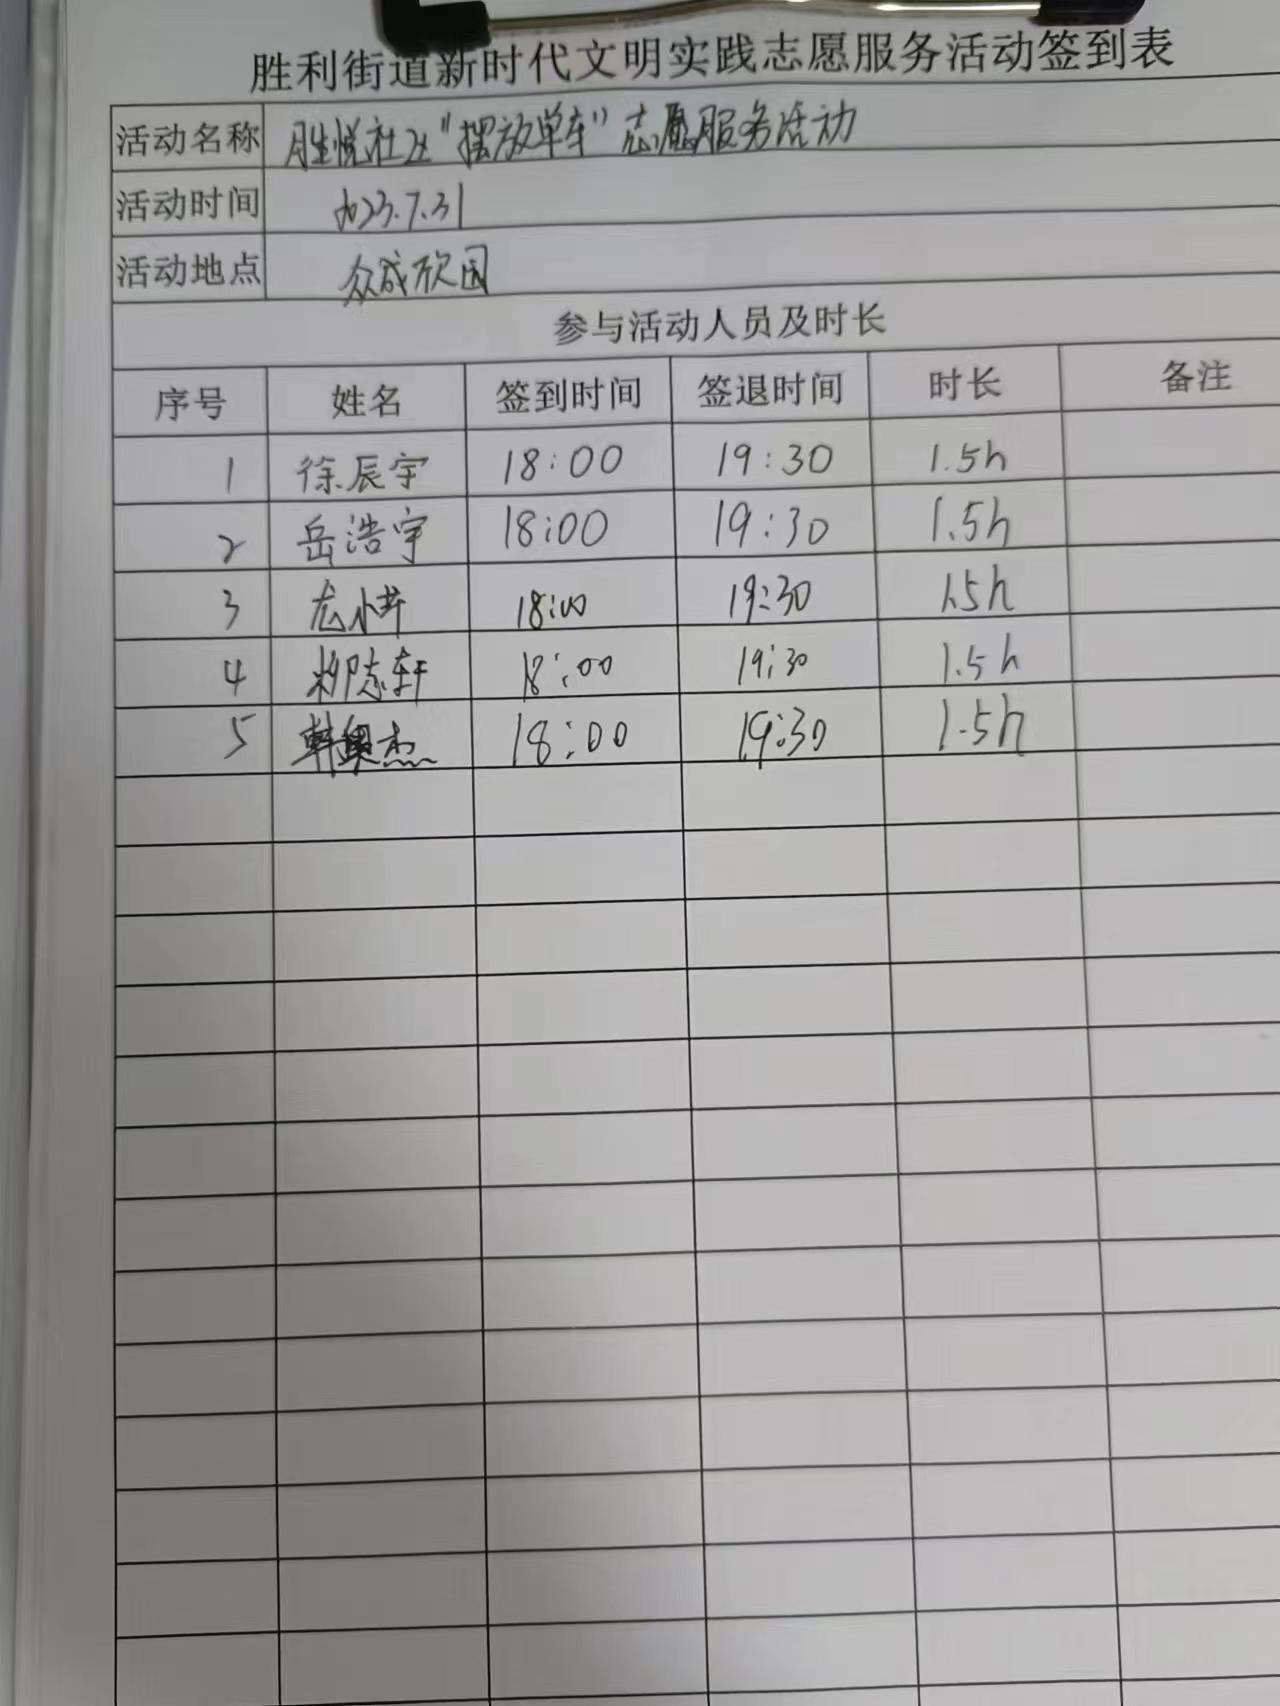 胜利街道新时代文明实践志愿服务活动签到表
活动名称 胜悦社区“摆放单车”志愿服务活动
活动时间 2023.7.31
活动地点 众成欣园
参与活动人员及时长
序号 姓名 签到时间 签退时间 时长 备注
1 徐辰宇 18:00 19:30 1.5h
2 岳浩宇 18:00 19:30 1.5h
3 18:00 19:30 1.5h
4 18:00 19:30 1.5h
5 18:00 19:30 1.5h